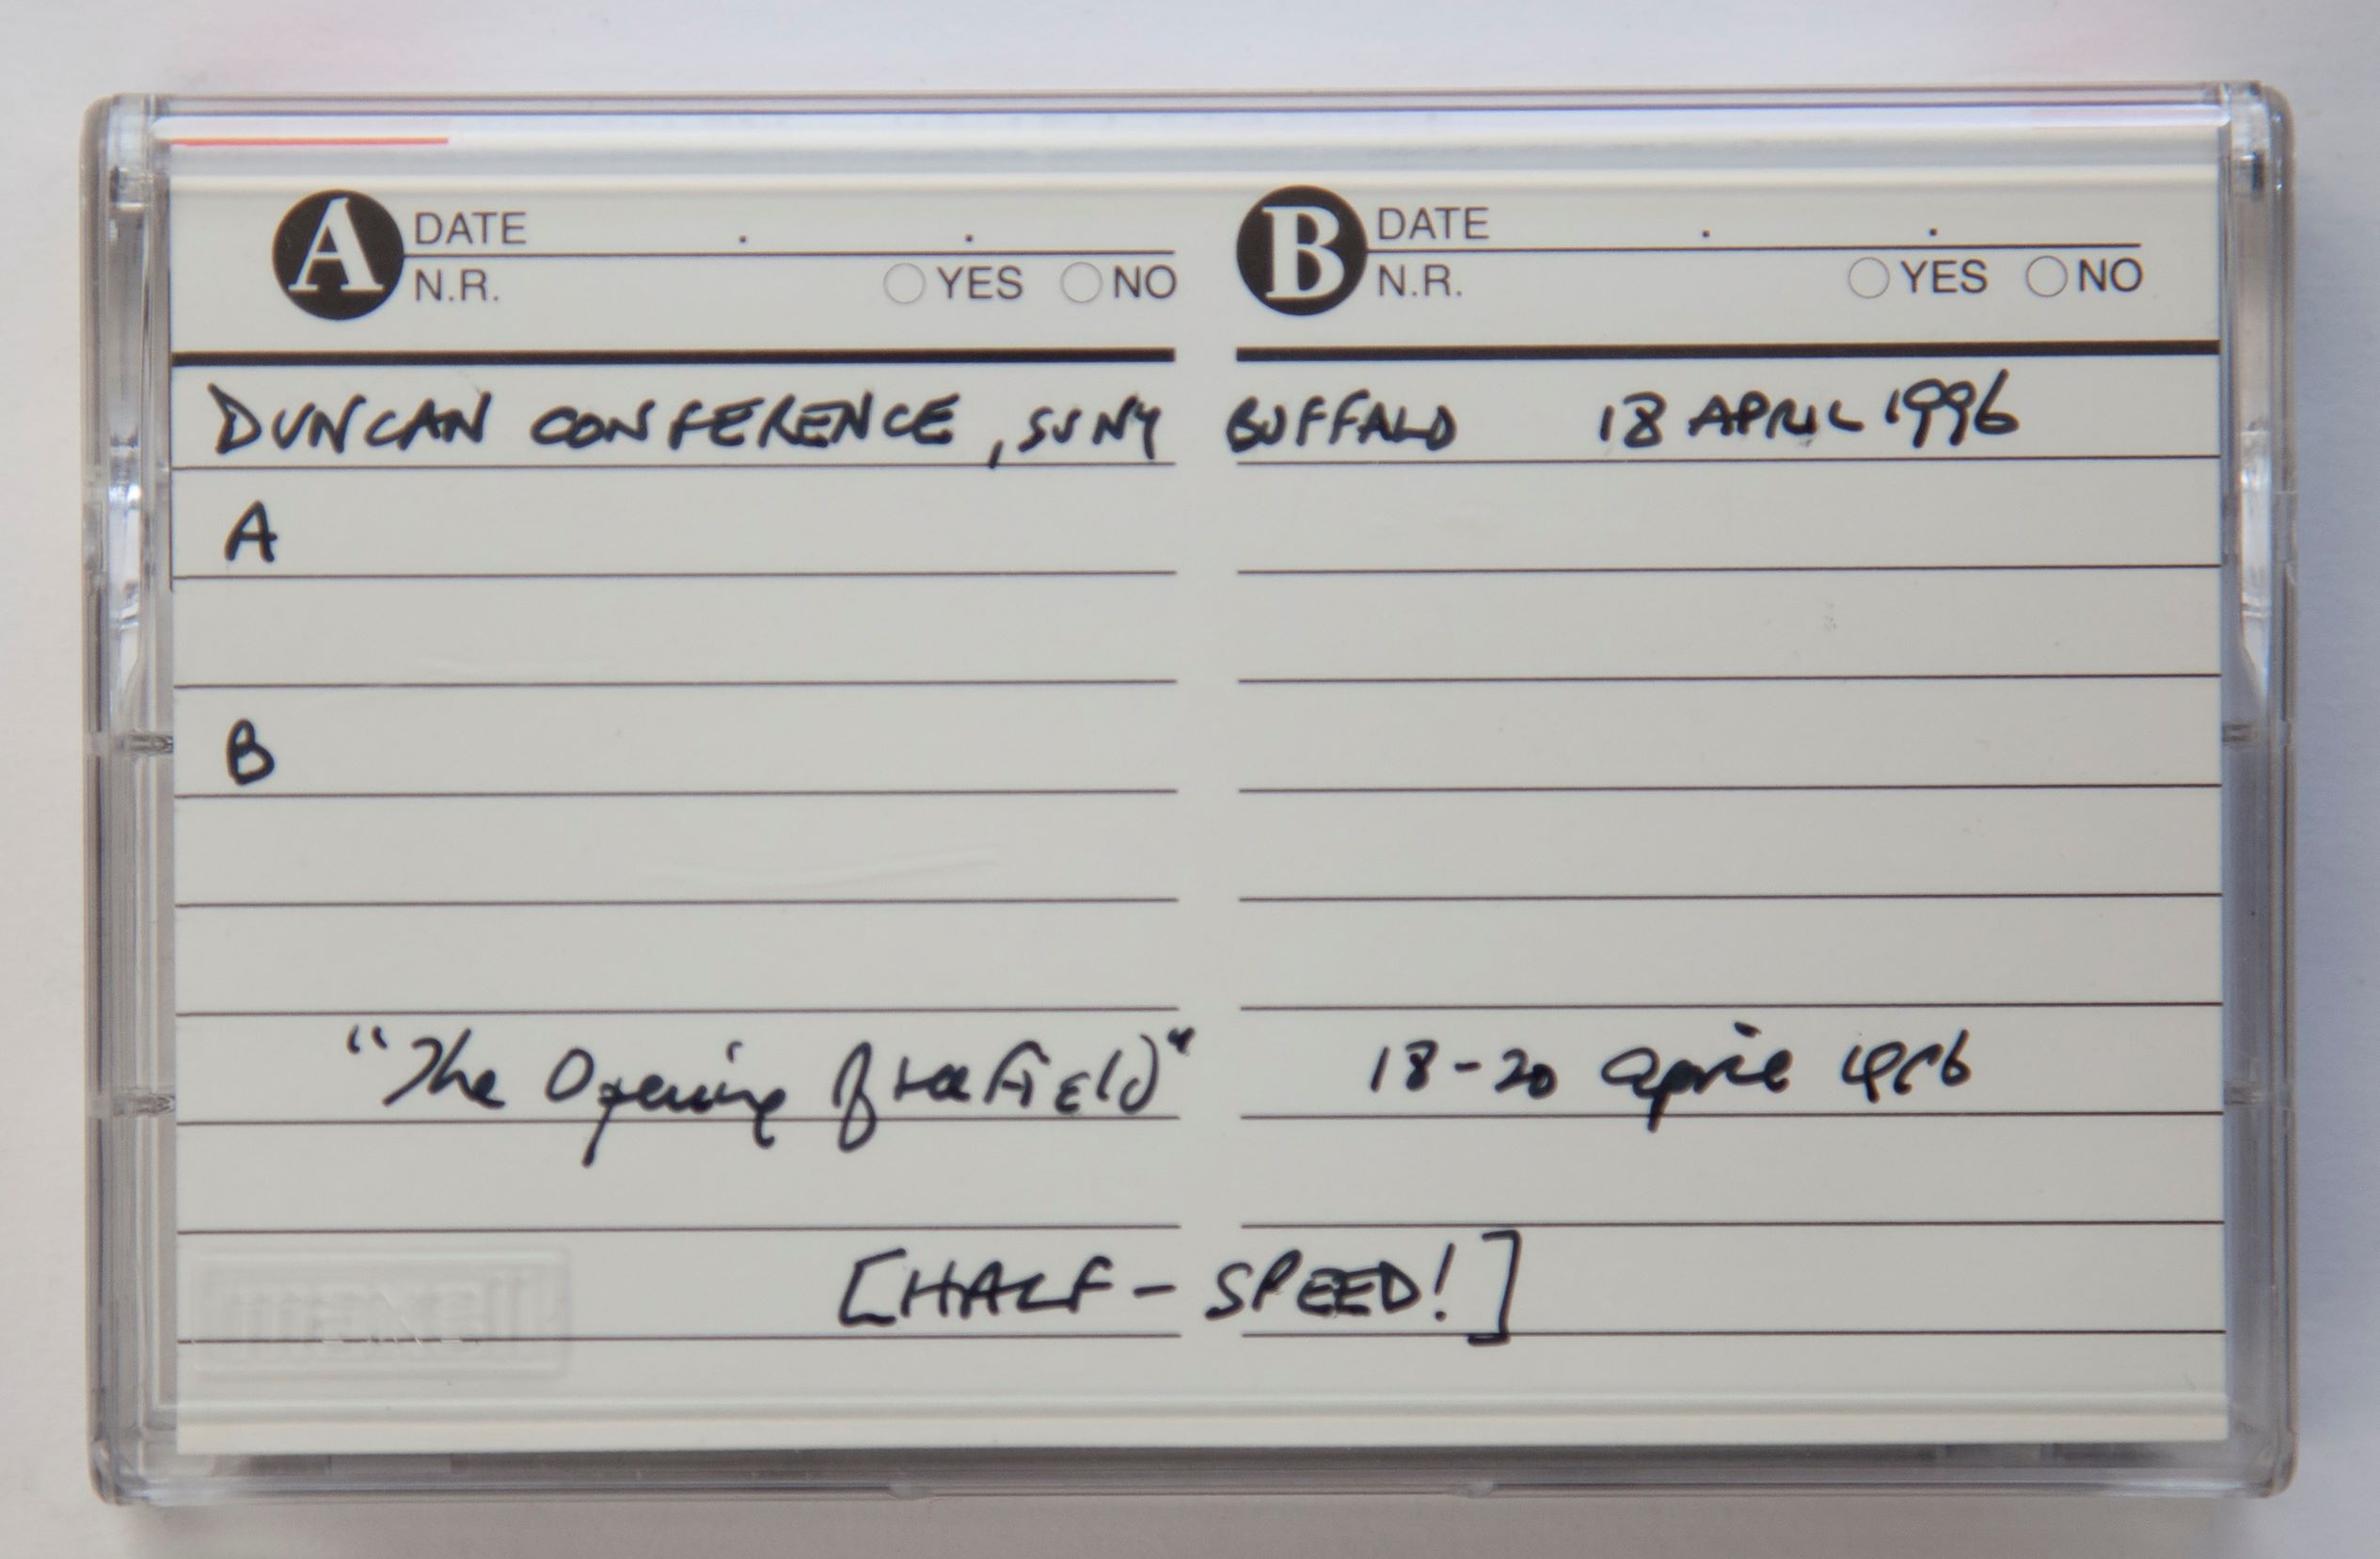 A DATE . . B DATE . .
N.R. YES NO N.R. YES NO
DUNCAN CONFERENCE, SUNY BUFFALO 18 APRIL 1996
A
B
"The Opening of the Field" 18-20 April 1996
[HALF-SPEED!]
maxell